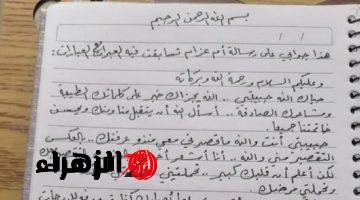 بسم الله الرحمن الرحيم
/ /
هذا جوابي على رسالة أم عزام تسابقت فيه العبرات العبارات:
وعليكم السلام ورحمة الله وبركاته
حياك الله حبيبتي .. الله يجزاك خير على كلماتك الطيبة
ومشاعرك الصادقة .. أسأل الله أن يتقبل منا ومنك ويحسن
خاتمتنا جميعا.
حبيبتي أنت والله ما قصرتي معي منذ عرفتك .. بالعكس
التقصير مني والله .. أنا أشعر
لكن أعلم أن قلبك كبير .. تحملتيني
وتحملتي مرضك
الزهراء